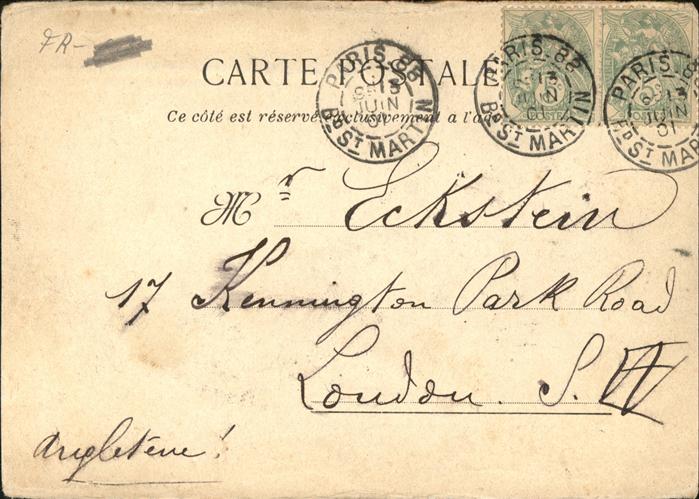 FR-
CARTE POSTALE
Ce côté est réservé exclusivement a l'ad
PARIS. 88
13
JUIN
01
Bᴰ Sᵀ MARTIN
PARIS. 88
13
JUIN
01
Bᴰ Sᵀ MARTIN
PARIS. 88
13
JUIN
01
Bᴰ Sᵀ MARTIN
Mr Eckstein
17 Kennington Park Road
London. S.W
Angleterre!